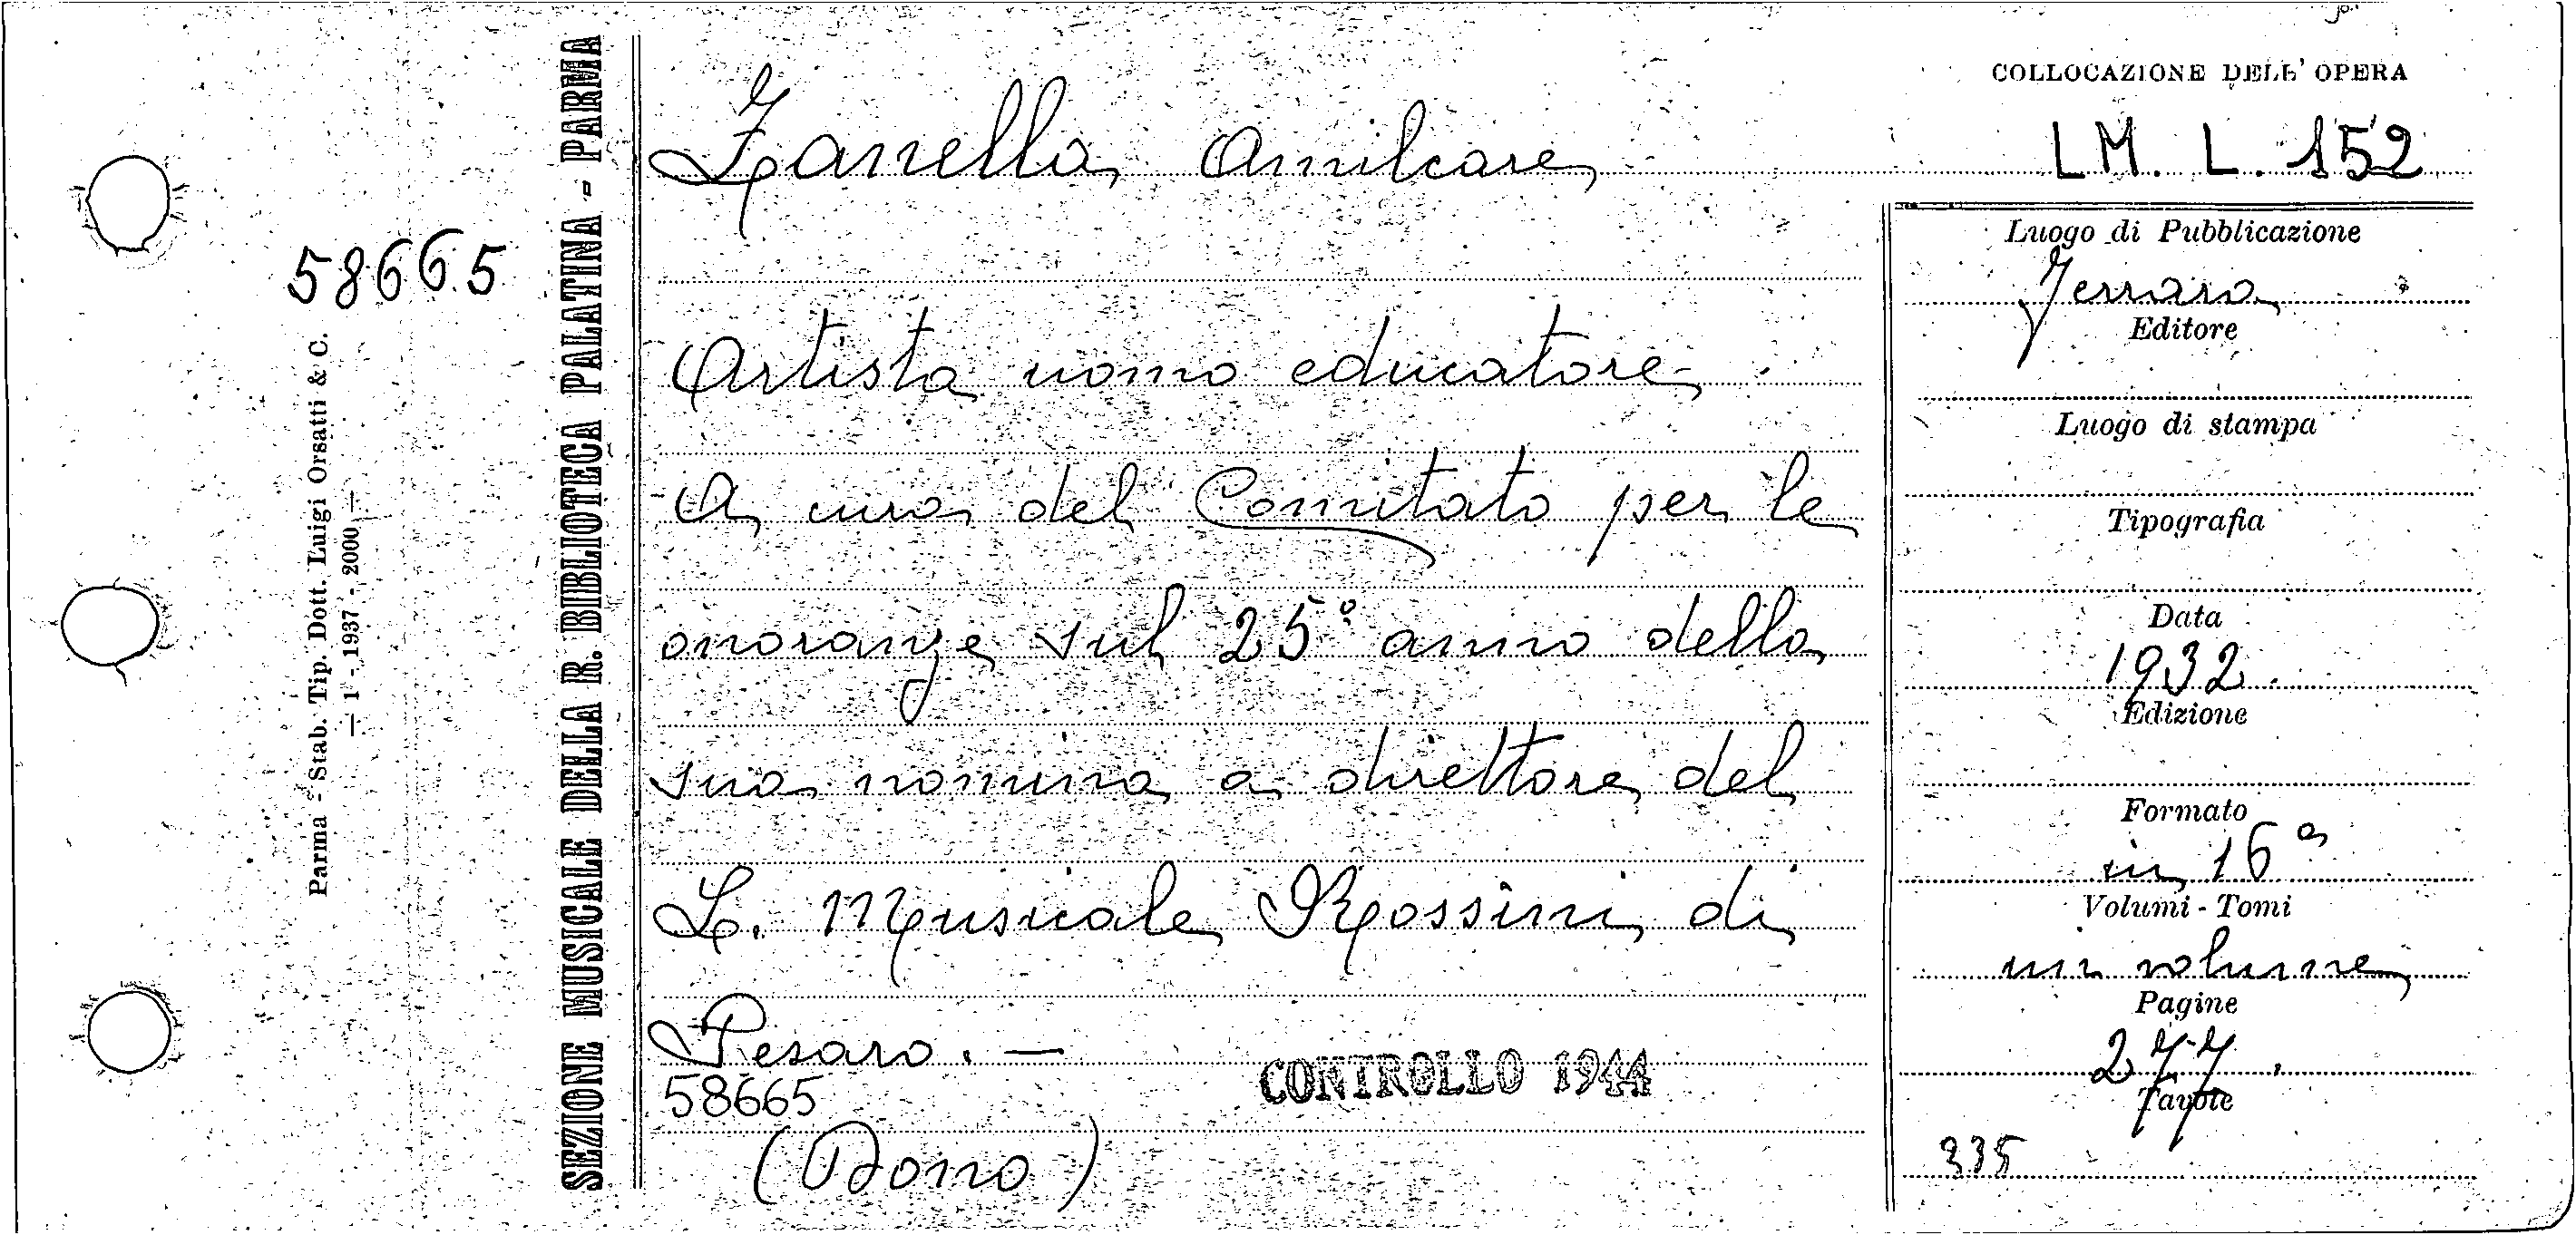 58665
Parma - Stab. Tip. Dott. Luigi Orsatti & C.
— 1 - 1937 - 2000 —
SEZIONE MUSICALE DELLA R. BIBLIOTECA PALATINA - PARMA
Zanella Amilcare
Artista uomo educatore
A cura del Comitato per le
onoranze sul 25° anno della
sua nomina a direttore del
L. Musicale Rossini di
Pesaro. —
58665
CONTROLLO 1944
(Dono)
COLLOCAZIONE DELL' OPERA
LM. L. 152
Luogo di Pubblicazione
Ferrara
Editore
Luogo di stampa
Tipografia
Data
1932
Edizione
Formato
in 16°
Volumi - Tomi
un volume
Pagine
277.
Tavole
335